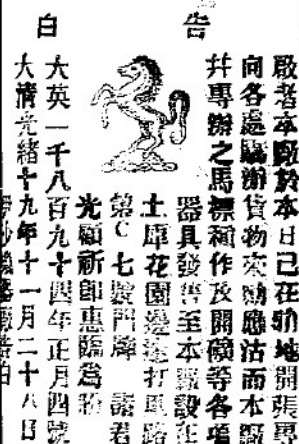 告白
啟者本廠於本日已在
地開張專
向各處
辦貨物
應沽而本
并專辦之馬標
作及開礦等各項
器具發售至本廠設在
土庫花園邊
打
路
第C七號門牌
諸君
光顧祈即惠臨為
大英一千八百九十四年正月四號
大清光緒十九年十一月二十八日